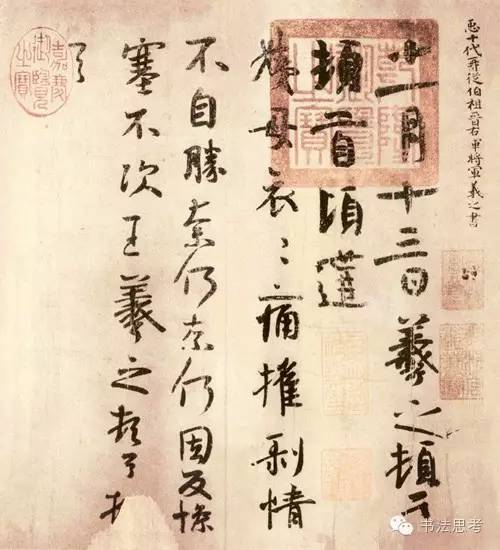 十代再從伯祖晉右軍將軍羲之書
十一月十三日羲之頓首
頓首頃遘
姨母哀〻痛摧剝情
不自勝奈何奈何因反慘
塞不次王羲之頓首頓
首
乾隆御覽之寶
嘉慶御覽之寶
书法思考